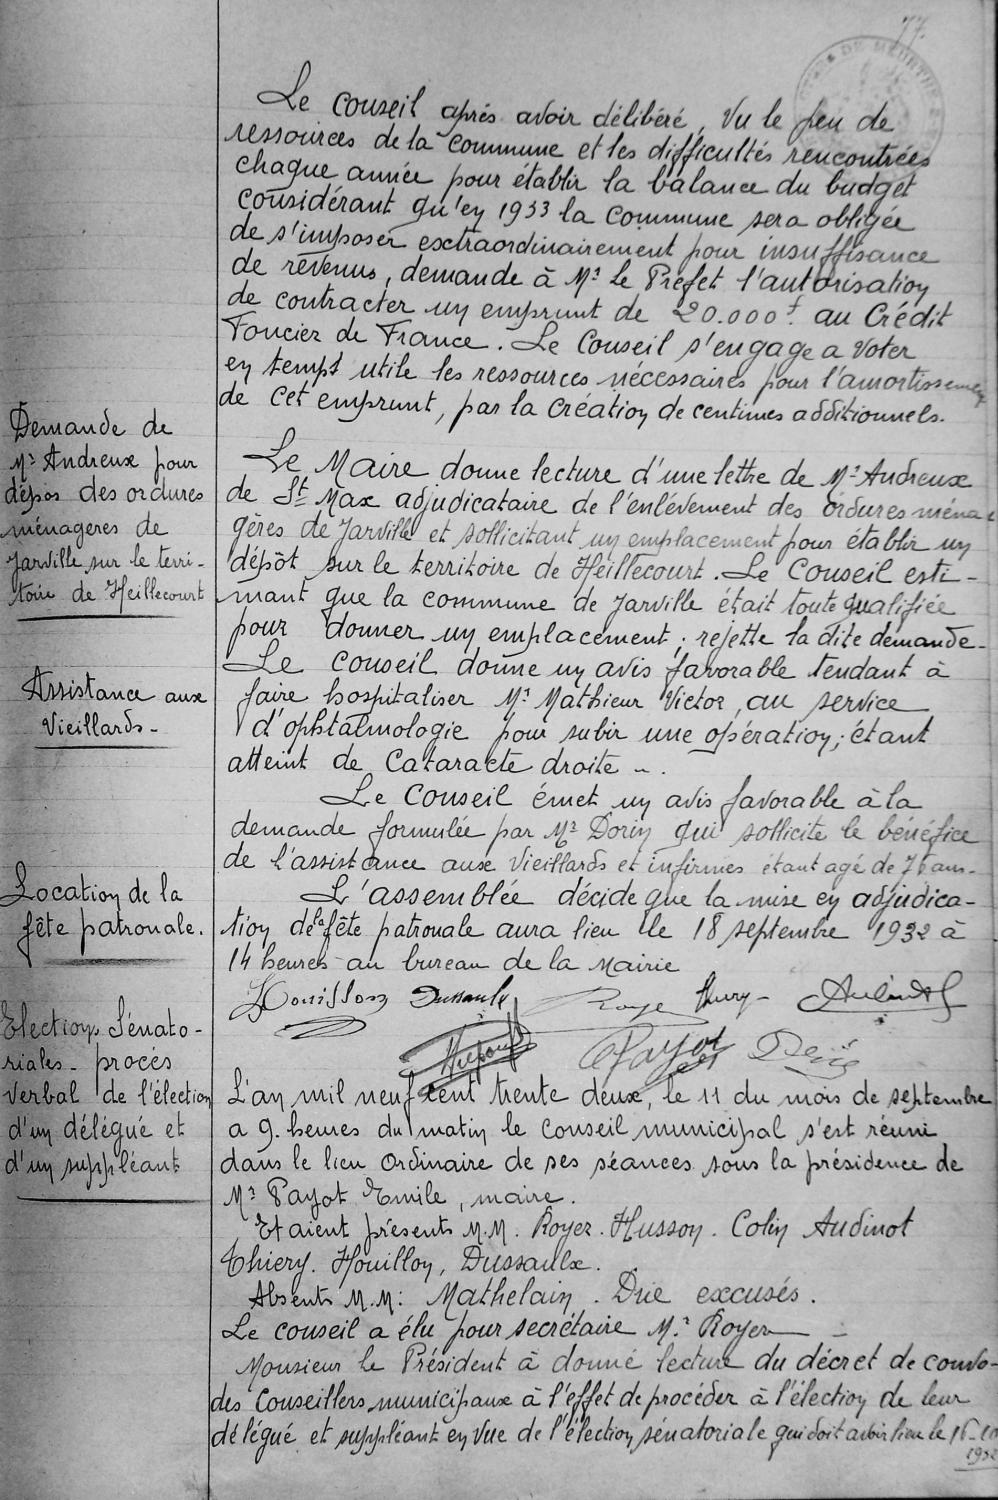 77.
Le Conseil après avoir délibéré, Vu le peu de
ressources de la Commune et les difficultés rencontrées
chaque année pour établir la balance du budget
considérant qu'en 1933 la Commune sera obligée
de s'imposer exctraordinairement pour insuffisance
de revenus, demande à Mr Le Préfet l'autorisation
de contracter un emprunt de 20.000f. au Crédit
Foncier de France. Le Conseil s'engage a Voter
en tempt utile les ressources nécessaires pour l'amortissement
de cet emprunt, par la Création de centimes additionnels.
Demande de
Mr Andreux pour
dépos des ordures
ménageres de
Jarville sur le terri-
toire de Heillecourt
Le Maire donne lecture d'une lettre de Mr Andreux
de St Max adjudicataire de l'enlévement des ordures ména
gères de Jarville et sollicitant un emplacement pour établir un
dépôt sur le territoire de Heillecourt. Le Conseil esti-
mant que la commune de Jarville était toute qualifiée
pour donner un emplacement; rejette la dite demande-
Assistance aux
Vieillards-
Le Conseil donne un avis favorable tendant à
faire hospitaliser Mr Mathieu Victor, au service
d'ophtalmologie pour subir une opération; étant
atteint de Cataracte droite -.
Le Conseil émet un avis favorable à la
demande formulée par Mr Dorin qui sollicite le bénéfice
de l'assistance aux Vieillards et infirmes étant agé de 76 ans-
Location de la
fête patronale.
L'assemblée décide que la mise en adjudica-
tion de la fête patronale aura lieu le 18 septembre 1932 à
14 heures au bureau de la Mairie
Houillon Dussaulx Royer Thiery Audinot
Payot
Elections Sénato-
riales- procés
Verbal de l'élection
d'un délégué et
d'un suppléant
L'an mil neuf cent trente deux, le 11 du mois de septembre
a 9. heures du matin le Conseil municipal s'est réuni
dans le lieu Ordinaire de ses séances sous la présidence de
Mr Payot Emile, maire.
Etaient présents M.M. Royer. Husson. Colin Audinot
Thiery. Houillon, Dussaulx.
Absents M.M: Mathelain. Drie excusés.
Le conseil a élu pour secrétaire Mr. Royer
Monsieur le Président à donné lecture du décret de convo-
des Conseillers municipaux à l'effet de procéder à l'élection de leur
délégué et suppléant en vue de l'élection sénatoriale qui doit avoir lieu le 16-10
1932